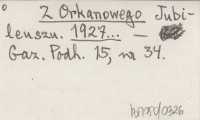 Z Orkanowego Jubi-
leuszu. 1927... —
Gaz. Podh. 15, nr 34.